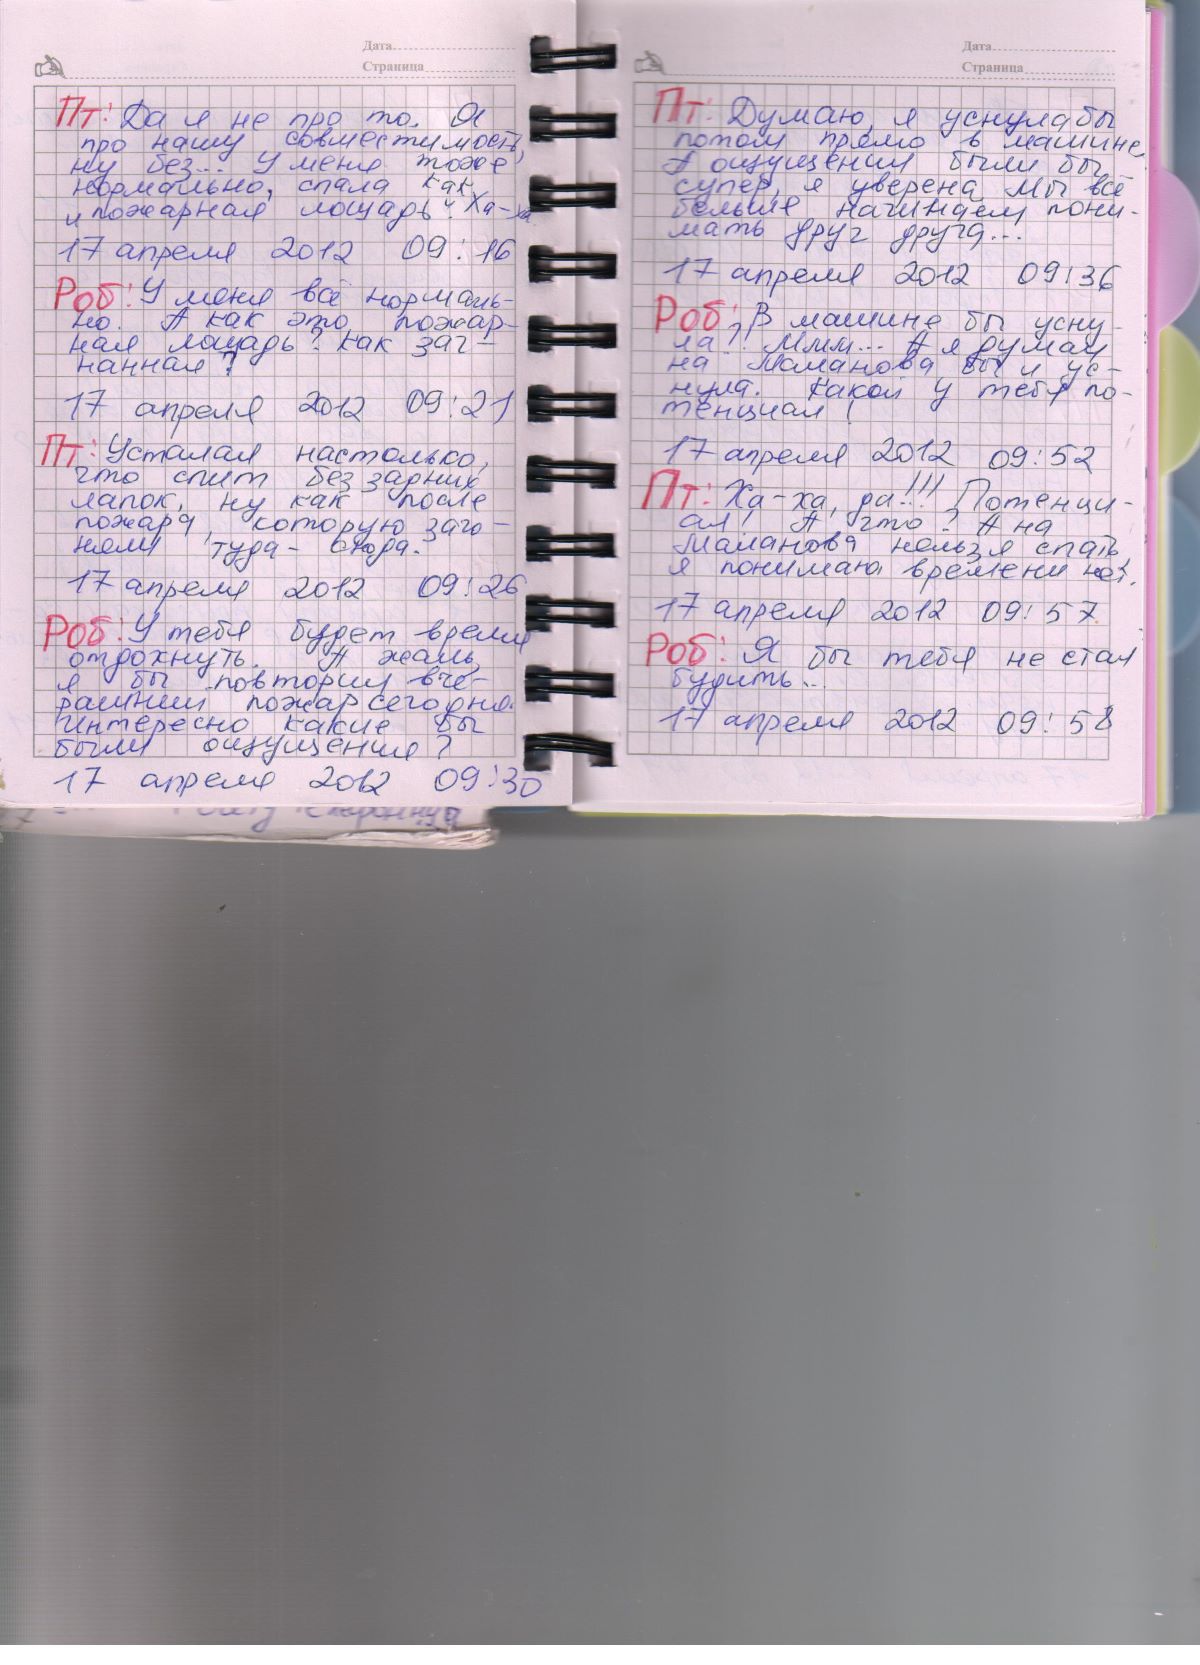 Дата
Страница
Пт: Да я не про то. Я
про нашу совместимость,
ну без... У меня тоже
нормально, спала как
и пожарная лощадь. Ха-ха
17 апреля 2012 09:16
Роб: У меня всё нормаль-
но. А как это, пожар-
ная лощадь? Как заг-
нанная?
17 апреля 2012 09:21
Пт: Усталая настолько,
что спит без задних
лапок, ну как после
пожара, которую заго-
няли туда-сюда.
17 апреля 2012 09:26
Роб: У тебя будет время
отдохнуть. А жаль,
я бы повторил вче-
рашний пожар сегодня.
Интересно какие бы
были ощущения?
17 апреля 2012 09:30
Дата
Страница
Пт: Думаю, я уснула бы
потом прямо в машине.
А ощущения были бы
супер, я уверена. Мы всё
больше начинаем пони-
мать друг друга...
17 апреля 2012 09:36
Роб: В машине бы усну-
ла?! Ммм... А я думал
на Маманова бы и ус-
нула. Какой у тебя по-
тенциал!
17 апреля 2012 09:52
Пт: Ха-ха, да!!! Потенци-
ал! А что? А на
Маманова нельзя спать
я понимаю времени нет.
17 апреля 2012 09:57
Роб: Я бы тебя не стал
будить...
17 апреля 2012 09:58